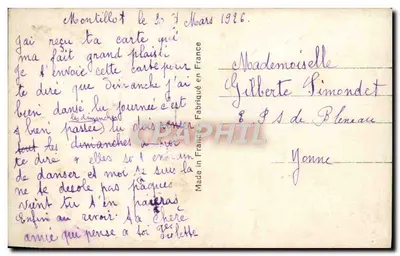 Montillot le 30 Mars 1926.
j'ai reçu ta carte qui
ma fait grand plaisi
je t'envoie cette carte pour
te dire que dimanche j'ai
bien dansé la journée c'est
les dimanches
bien passée
tout les dimanches
te dire elles so t
de danser et moi je suis la
ne te desole pas pâques
vient tu s'en paieras
Enfin au revoir. Ta Chère
amie qui pense a toi
Violette
Made in France - Fabriqué en France
PAPHIL
Mademoiselle
Gilberte Simondet
E P S de Bleneau
Yonne